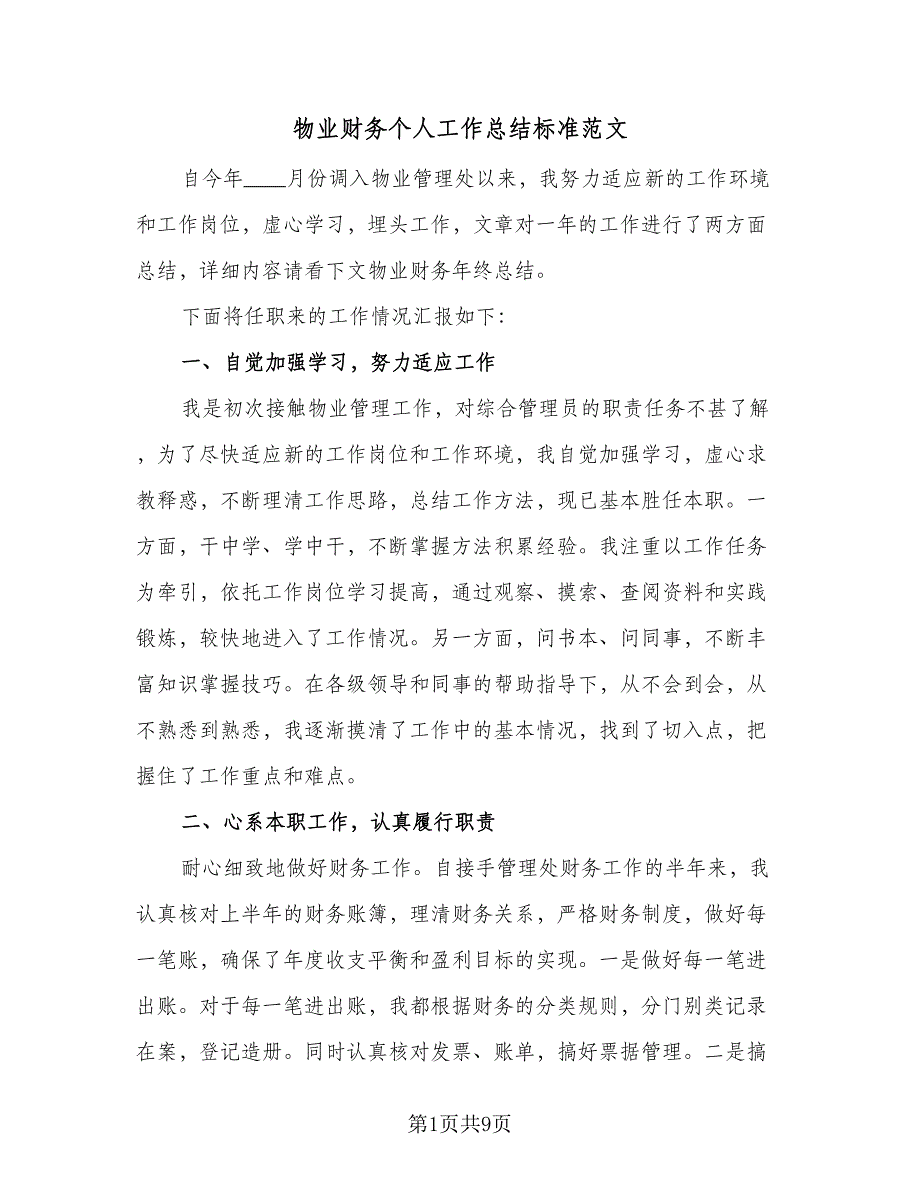 物业财务个人工作总结标准范文
自今年____月份调入物业管理处以来，我努力适应新的工作环境
和工作岗位，虚心学习，埋头工作，文章对一年的工作进行了两方面
总结，详细内容请看下文物业财务年终总结。
下面将任职来的工作情况汇报如下：
一、自觉加强学习，努力适应工作
我是初次接触物业管理工作，对综合管理员的职责任务不甚了解
，为了尽快适应新的工作岗位和工作环境，我自觉加强学习，虚心求
教释惑，不断理清工作思路，总结工作方法，现已基本胜任本职。一
方面，干中学、学中干，不断掌握方法积累经验。我注重以工作任务
为牵引，依托工作岗位学习提高，通过观察、摸索、查阅资料和实践
锻炼，较快地进入了工作情况。另一方面，问书本、问同事，不断丰
富知识掌握技巧。在各级领导和同事的帮助指导下，从不会到会，从
不熟悉到熟悉，我逐渐摸清了工作中的基本情况，找到了切入点，把
握住了工作重点和难点。
二、心系本职工作，认真履行职责
耐心细致地做好财务工作。自接手管理处财务工作的半年来，我
认真核对上半年的财务账簿，理清财务关系，严格财务制度，做好每
一笔账，确保了年度收支平衡和盈利目标的实现。一是做好每一笔进
出账。对于每一笔进出账，我都根据财务的分类规则，分门别类记录
在案，登记造册。同时认真核对发票、账单，搞好票据管理。二是搞
第1页共9页